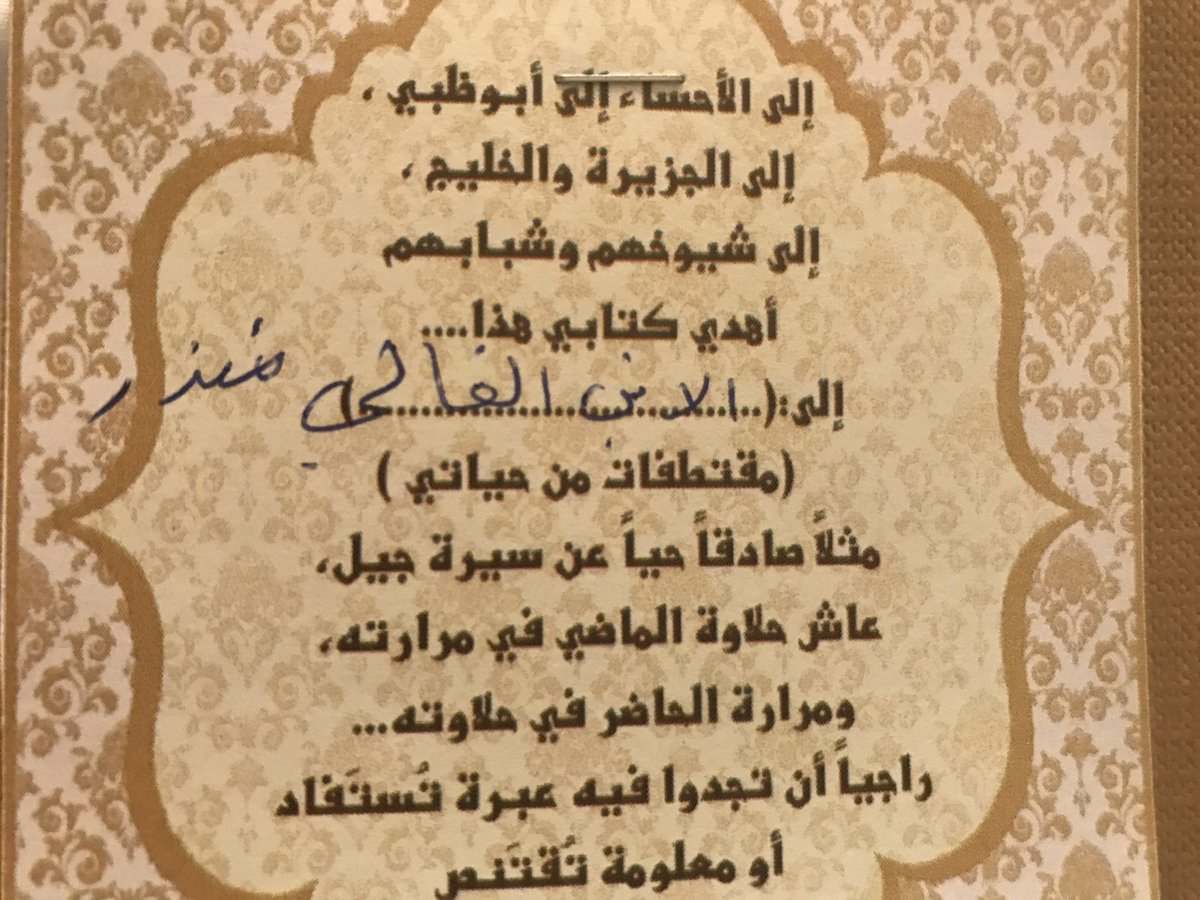 إلى الأحساء إلى أبوظبي ،
إلى الجزيرة والخليج ،
إلى شيوخهم وشبابهم
أهدي كتابي هذا....
إلى:(الابن الغالي منذر)
(مقتطفات من حياتي )
مثلاً صادقاً حياً عن سيرة جيل،
عاش حلاوة الماضي في مرارته،
ومرارة الحاضر في حلاوته...
راجياً أن تجدوا فيه عبرة تُستَفاد
أو معلومة تُقتَنص